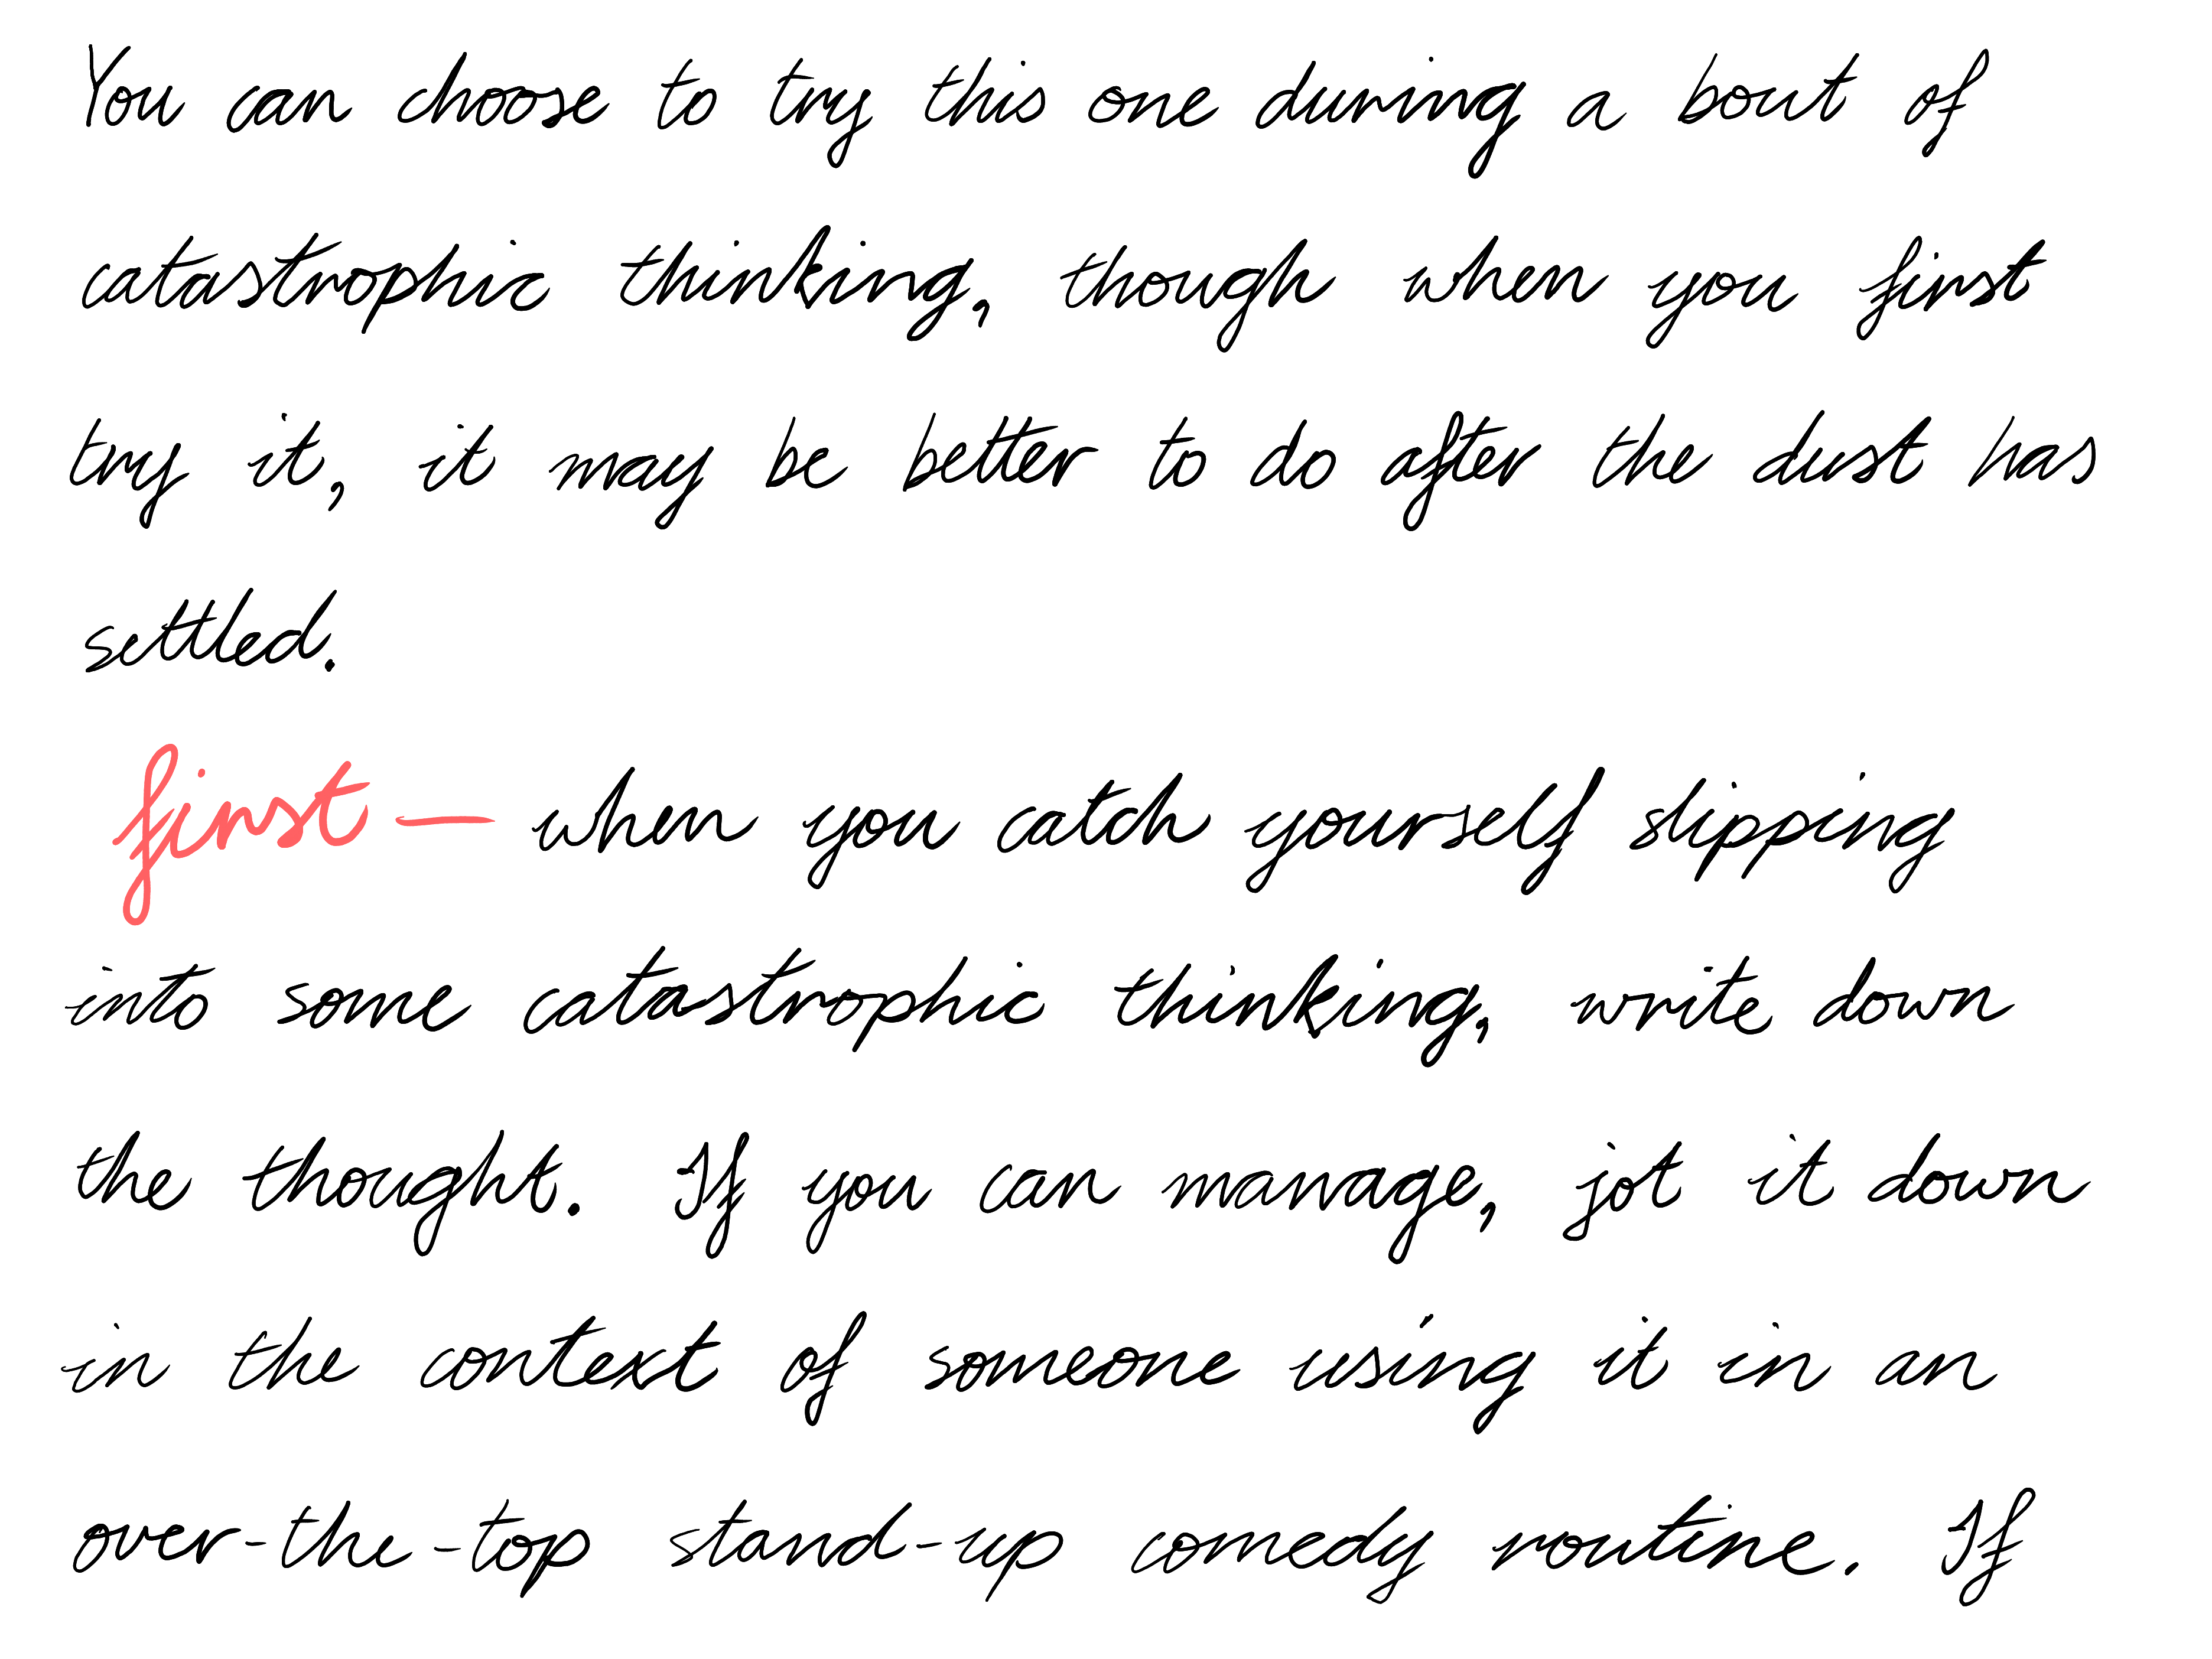 You can choose to try this one during a bout of
catastrophic thinking, though when you first
try it, it may be better to do after the dust has
settled.
first — when you catch yourself slipping
into some catastrophic thinking, write down
the thought. If you can manage, jot it down
in the context of someone using it in an
over-the-top stand-up comedy routine. If